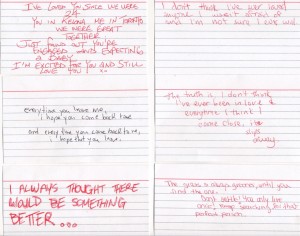 I'VE LOVED YOU SINCE WE WERE
24.
YOU IN ARIZONA, ME IN
WE WERE GREAT
TOGETHER.
JUST FOUND OUT YOU'RE
ENGAGED AND EXPECTING
A BABY.
I'M EXCITED FOR YOU AND STILL
LOVE YOU ...
I don't think I've ever loved
anyone I wasn't afraid of
and I'm not sure I ever will
everytime you leave me,
I hope you come back to me
and every time you come back to me,
I hope that you leave.
The truth is, I don't think
I've ever been in love &
everytime I think I
come close, I
run
away.
I ALWAYS THOUGHT THERE
WOULD BE SOMETHING
BETTER...
The grass is always greener, until you
find the one.
Don't settle! You only live
once! Keep searching for that
perfect person.